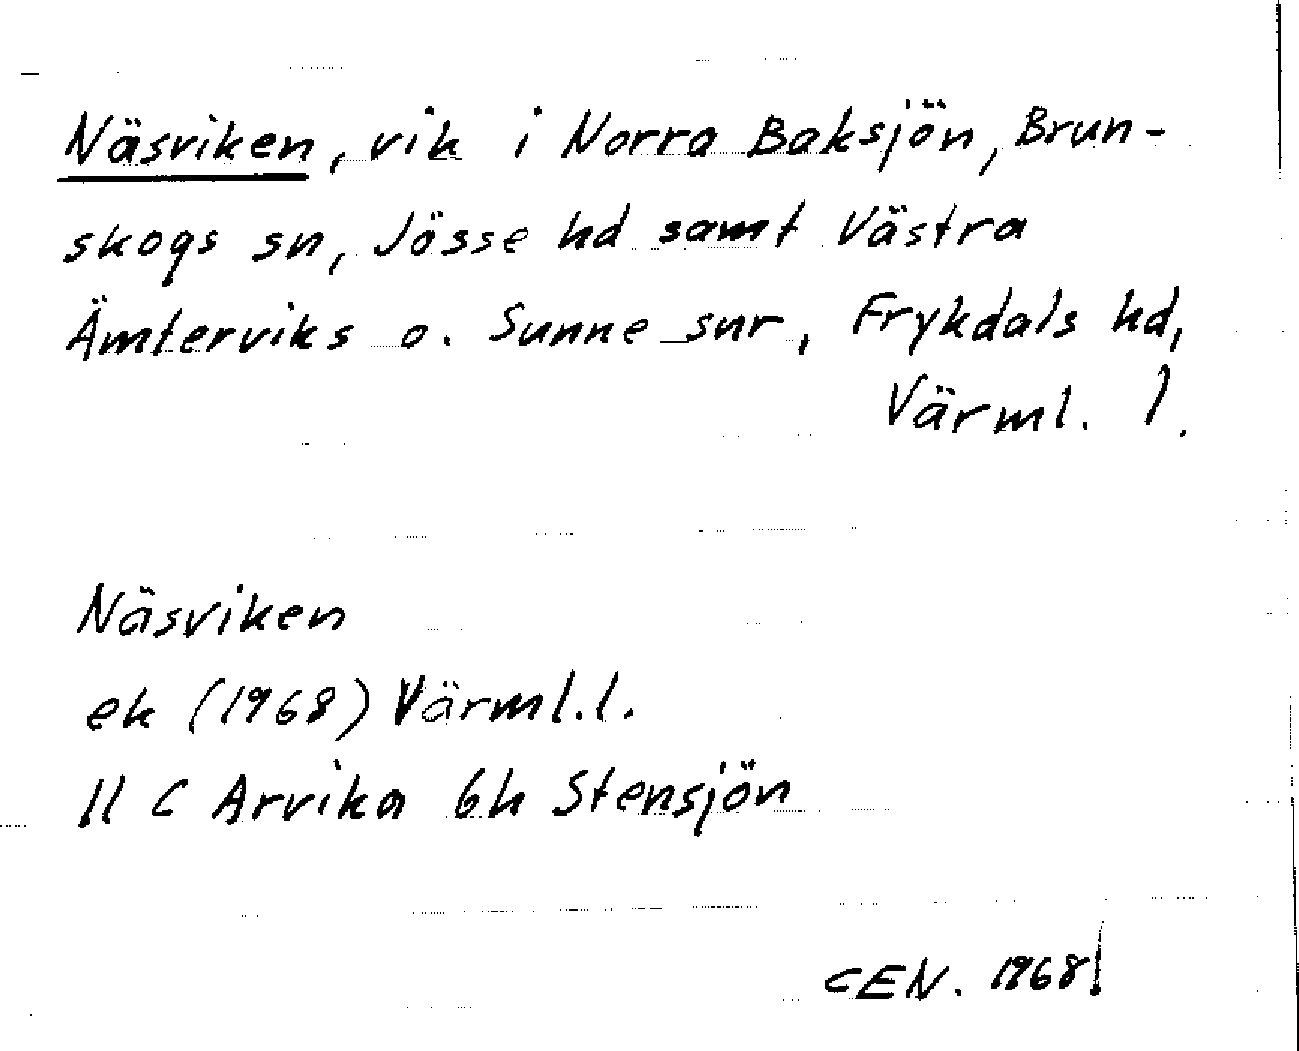 Näsviken, vik i Norra Baksjön, Brun-
skogs sn, Jösse hd samt Västra
Ämterviks o. Sunne snr, Frykdals hd,
Värml. l.
Näsviken
ek (1968) Värml.l.
11 C Arvika 6h Stensjön
CEN. 1968!